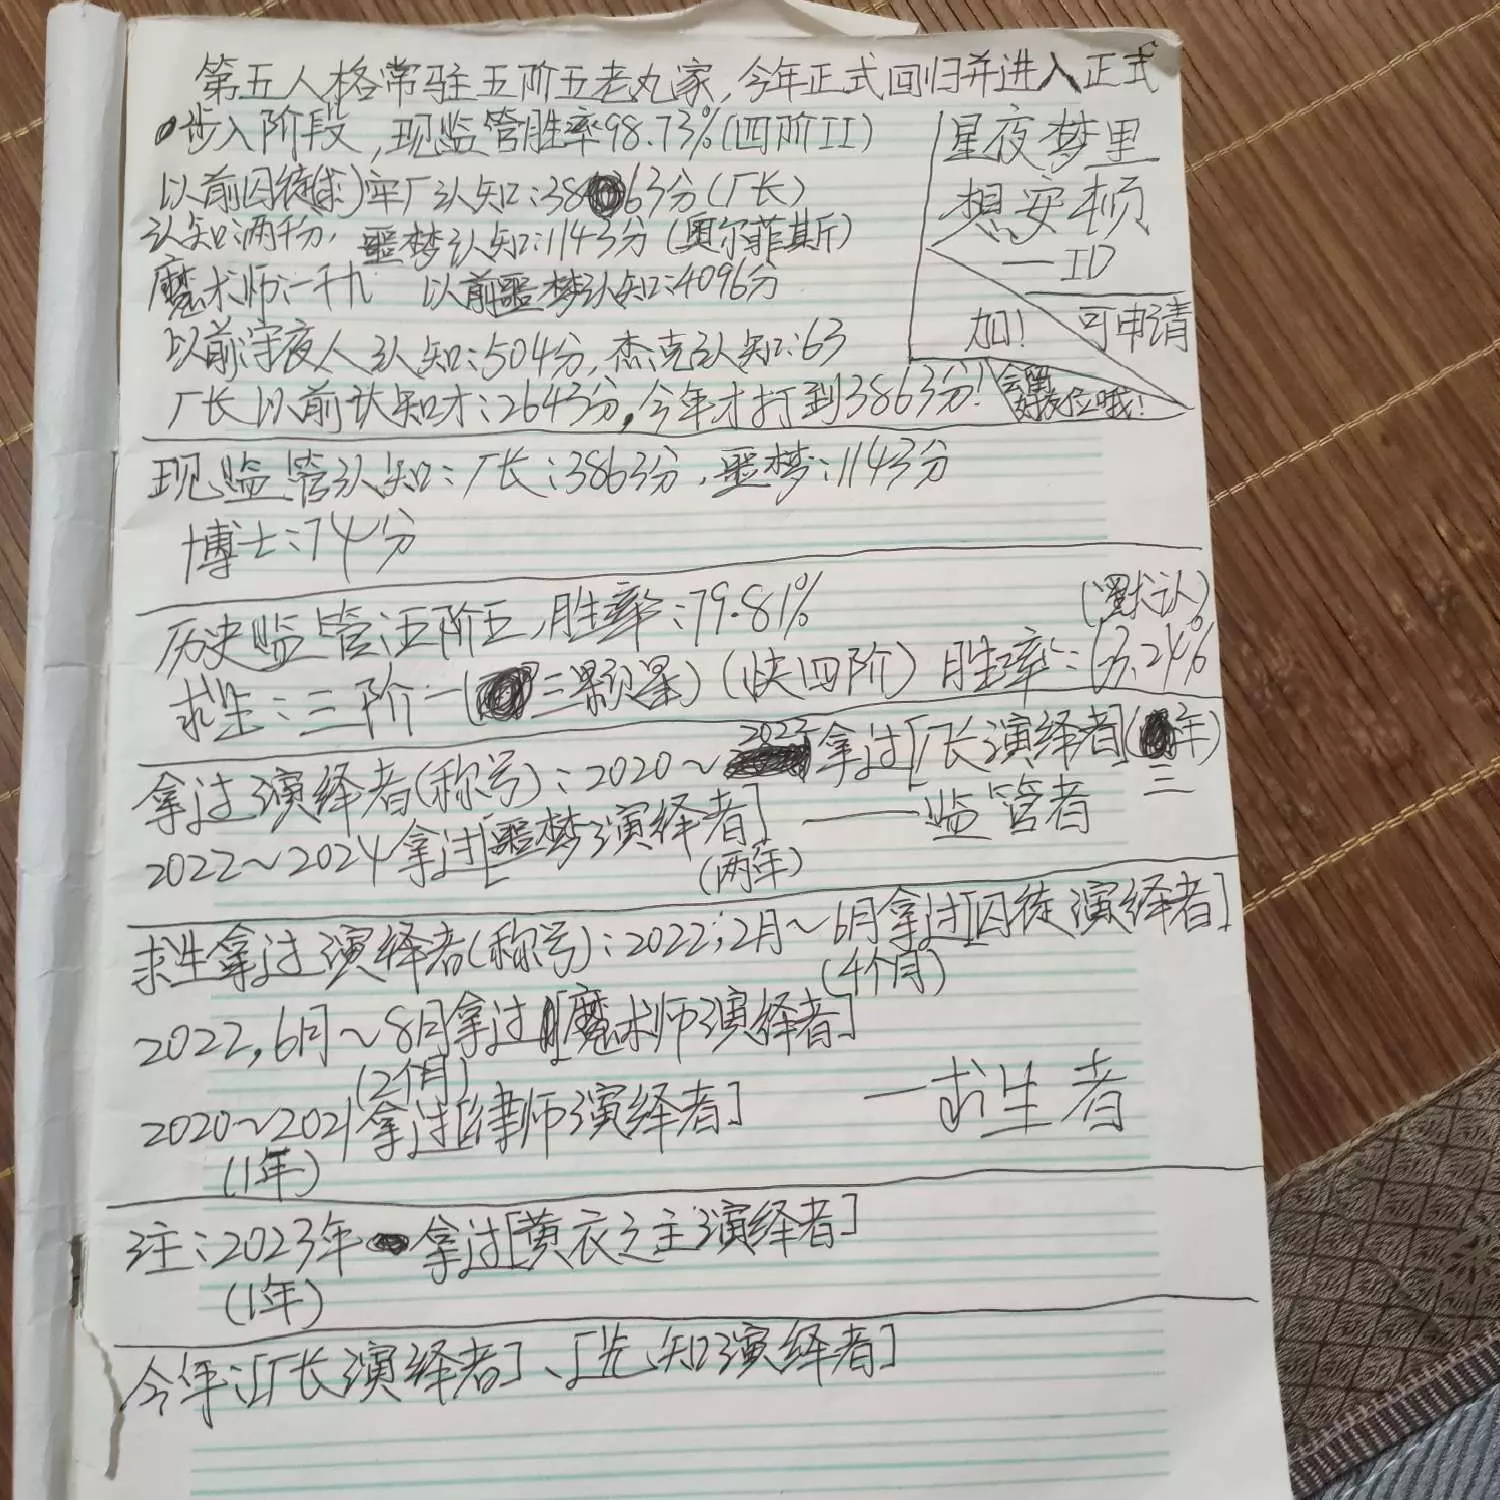 第五人格常驻五阶五老丸家,今年正式回归并进入正式
步入阶段,现监管胜率98.73%(四阶II)
星夜梦里
想安顿
—ID
加! 可申请
会留
好友位哦!
以前囚徒(求)牢厂认知:3863分(厂长)
认知:两千分,噩梦认知:1143分(奥尔菲斯)
魔术师:一千九 以前噩梦认知:4096分
以前守夜人认知:504分,杰克认知:63
厂长以前认知才:2643分,今年才打到3863分!
现监管认知:厂长:3863分,噩梦:1143分
博士:74分
历史监管:五阶五,胜率:79.81%
(默认)
求生:三阶一(三颗星)(快四阶)胜率:63.24%
拿过演绎者(称号):2020~2023拿过[厂长演绎者](三年)
2022~2024拿过[噩梦演绎者] ——监管者
(两年)
求生拿过演绎者(称号):2022;2月~6月拿过[囚徒演绎者]
(4个月)
2022,6月~8月拿过[魔术师演绎者]
(2个月)
2020~2021拿过[律师演绎者] —求生者
(1年)
注:2023年拿过[黄衣之主演绎者]
(1年)
今年:[厂长演绎者]、[先知演绎者]